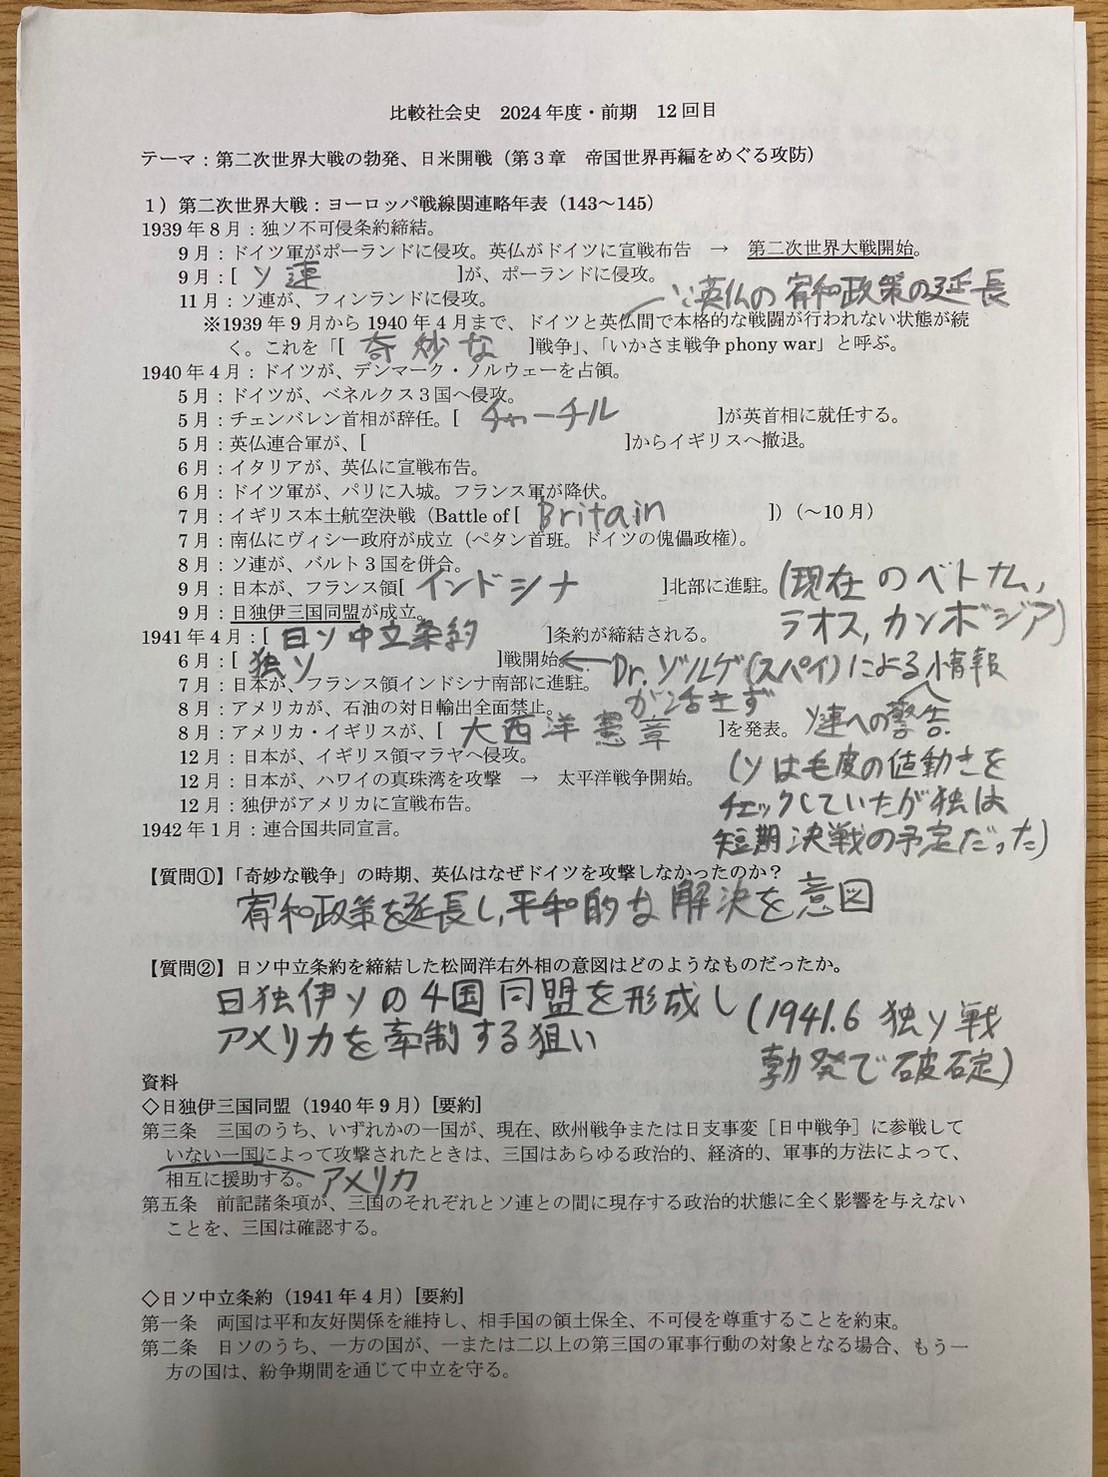 比較社会史　2024年度・前期　12回目
テーマ：第二次世界大戦の勃発、日米開戦（第3章　帝国世界再編をめぐる攻防）
1）第二次世界大戦：ヨーロッパ戦線関連略年表（143～145）
1939年8月：独ソ不可侵条約締結。
9月：ドイツ軍がポーランドに侵攻。英仏がドイツに宣戦布告　→　第二次世界大戦開始。
9月：[ ソ連 ]が、ポーランドに侵攻。
11月：ソ連が、フィンランドに侵攻。
∵英仏の宥和政策の延長
※1939年9月から1940年4月まで、ドイツと英仏間で本格的な戦闘が行われない状態が続
く。これを「[ 奇妙な ]戦争」、「いかさま戦争 phony war」と呼ぶ。
1940年4月：ドイツが、デンマーク・ノルウェーを占領。
5月：ドイツが、ベネルクス3国へ侵攻。
5月：チェンバレン首相が辞任。[ チャーチル ]が英首相に就任する。
5月：英仏連合軍が、[ ]からイギリスへ撤退。
6月：イタリアが、英仏に宣戦布告。
6月：ドイツ軍が、パリに入城。フランス軍が降伏。
7月：イギリス本土航空決戦（Battle of [ Britain ]）（～10月）
7月：南仏にヴィシー政府が成立（ペタン首班。ドイツの傀儡政権）。
8月：ソ連が、バルト3国を併合。
9月：日本が、フランス領[ インドシナ ]北部に進駐。(現在のベトナム,
9月：日独伊三国同盟が成立。
ラオス,カンボジア)
1941年4月：[ 日ソ中立条約 ]条約が締結される。
6月：[ 独ソ ]戦開始。←Dr.ゾルゲ(スパイ)による情報
7月：日本が、フランス領インドシナ南部に進駐。
が活きず
8月：アメリカが、石油の対日輸出全面禁止。
8月：アメリカ・イギリスが、[ 大西洋憲章 ]を発表。ソ連への警告.
12月：日本が、イギリス領マラヤへ侵攻。
(ソは毛皮の値動きを
12月：日本が、ハワイの真珠湾を攻撃　→　太平洋戦争開始。
チェックしていたが独は
12月：独伊がアメリカに宣戦布告。
1942年1月：連合国共同宣言。
短期決戦の予定だった)
【質問①】「奇妙な戦争」の時期、英仏はなぜドイツを攻撃しなかったのか？
宥和政策を延長し,平和的な解決を意図
【質問②】日ソ中立条約を締結した松岡洋右外相の意図はどのようなものだったか。
日独伊ソの4国同盟を形成し
アメリカを牽制する狙い
(1941.6 独ソ戦
勃発で破綻)
資料
◇日独伊三国同盟（1940年9月）[要約]
第三条　三国のうち、いずれかの一国が、現在、欧州戦争または日支事変［日中戦争］に参戦して
いない一国によって攻撃されたときは、三国はあらゆる政治的、経済的、軍事的方法によって、
相互に援助する。アメリカ
第五条　前記諸条項が、三国のそれぞれとソ連との間に現存する政治的状態に全く影響を与えない
ことを、三国は確認する。
◇日ソ中立条約（1941年4月）[要約]
第一条　両国は平和友好関係を維持し、相手国の領土保全、不可侵を尊重することを約束。
第二条　日ソのうち、一方の国が、一または二以上の第三国の軍事行動の対象となる場合、もう一
方の国は、紛争期間を通じて中立を守る。